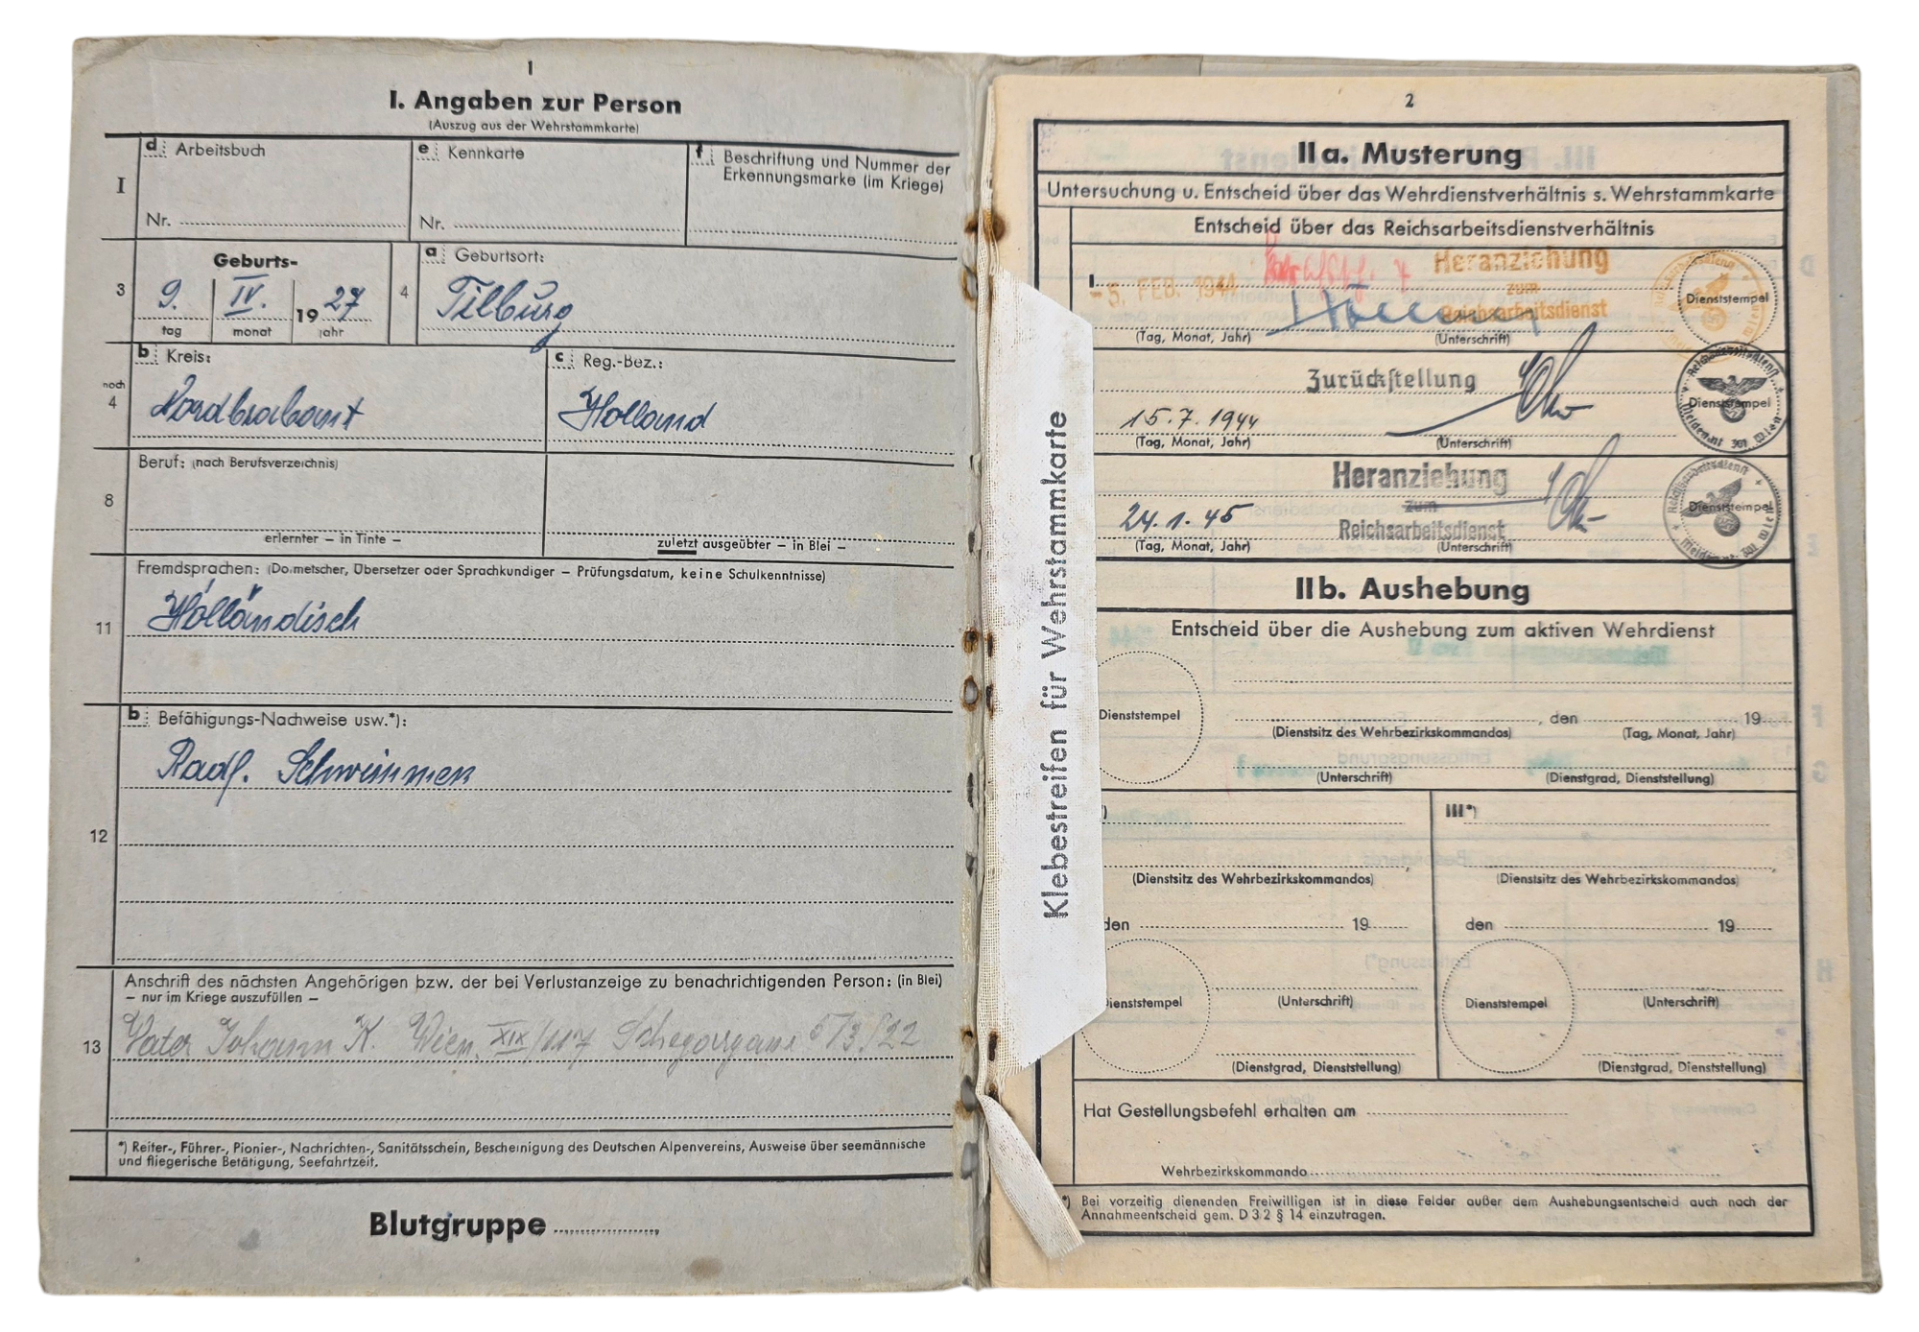 1
I. Angaben zur Person
(Auszug aus der Wehrstammkarte)
I
d Arbeitsbuch
Nr.
e Kennkarte
Nr.
f Beschriftung und Nummer der
Erkennungsmarke (im Kriege)
3
Geburts-
9. IV. 1927
tag monat jahr
4
a Geburtsort:
Tilburg
noch
4
b Kreis:
Nordbrabant
c Reg.-Bez.:
Holland
8
Beruf: (nach Berufsverzeichnis)
erlernter – in Tinte –
zuletzt ausgeübter – in Blei –
11
Fremdsprachen: (Dolmetscher, Übersetzer oder Sprachkundiger – Prüfungsdatum, keine Schulkenntnisse)
Holländisch
12
b Befähigungs-Nachweise usw.*):
Radf. Schwimmen
13
Anschrift des nächsten Angehörigen bzw. der bei Verlustanzeige zu benachrichtigenden Person: (in Blei)
– nur im Kriege auszufüllen –
Vater Johann K. Wien XIX/117
*) Reiter-, Führer-, Pionier-, Nachrichten-, Sanitätsschein, Bescheinigung des Deutschen Alpenvereins, Ausweise über seemännische
und fliegerische Betätigung, Seefahrtzeit.
Blutgruppe
Klebestreifen für Wehrstammkarte
2
IIa. Musterung
Untersuchung u. Entscheid über das Wehrdienstverhältnis s. Wehrstammkarte
Entscheid über das Reichsarbeitsdienstverhältnis
Heranziehung
zum
Reichsarbeitsdienst
-5. FEB. 1944
Dienststempel
(Tag, Monat, Jahr) (Unterschrift)
Zurückstellung
15.7.1944
Dienststempel
Reichsarbeitsdienst
Meldeamt 301 Wien
(Tag, Monat, Jahr) (Unterschrift)
Heranziehung
zum
Reichsarbeitsdienst
24.1.45
Dienststempel
Reichsarbeitsdienst
Meldeamt 301 Wien
(Tag, Monat, Jahr) (Unterschrift)
IIb. Aushebung
Entscheid über die Aushebung zum aktiven Wehrdienst
Dienststempel
, den 19
(Dienstsitz des Wehrbezirkskommandos) (Tag, Monat, Jahr)
(Unterschrift) (Dienstgrad, Dienststellung)
III*)
(Dienstsitz des Wehrbezirkskommandos) (Dienstsitz des Wehrbezirkskommandos)
den 19 den 19
Dienststempel (Unterschrift) Dienststempel (Unterschrift)
(Dienstgrad, Dienststellung) (Dienstgrad, Dienststellung)
Hat Gestellungsbefehl erhalten am
Wehrbezirkskommando
*) Bei vorzeitig dienenden Freiwilligen ist in diese Felder außer dem Aushebungsentscheid auch noch der
Annahmeentscheid gem. D 3/2 § 14 einzutragen.